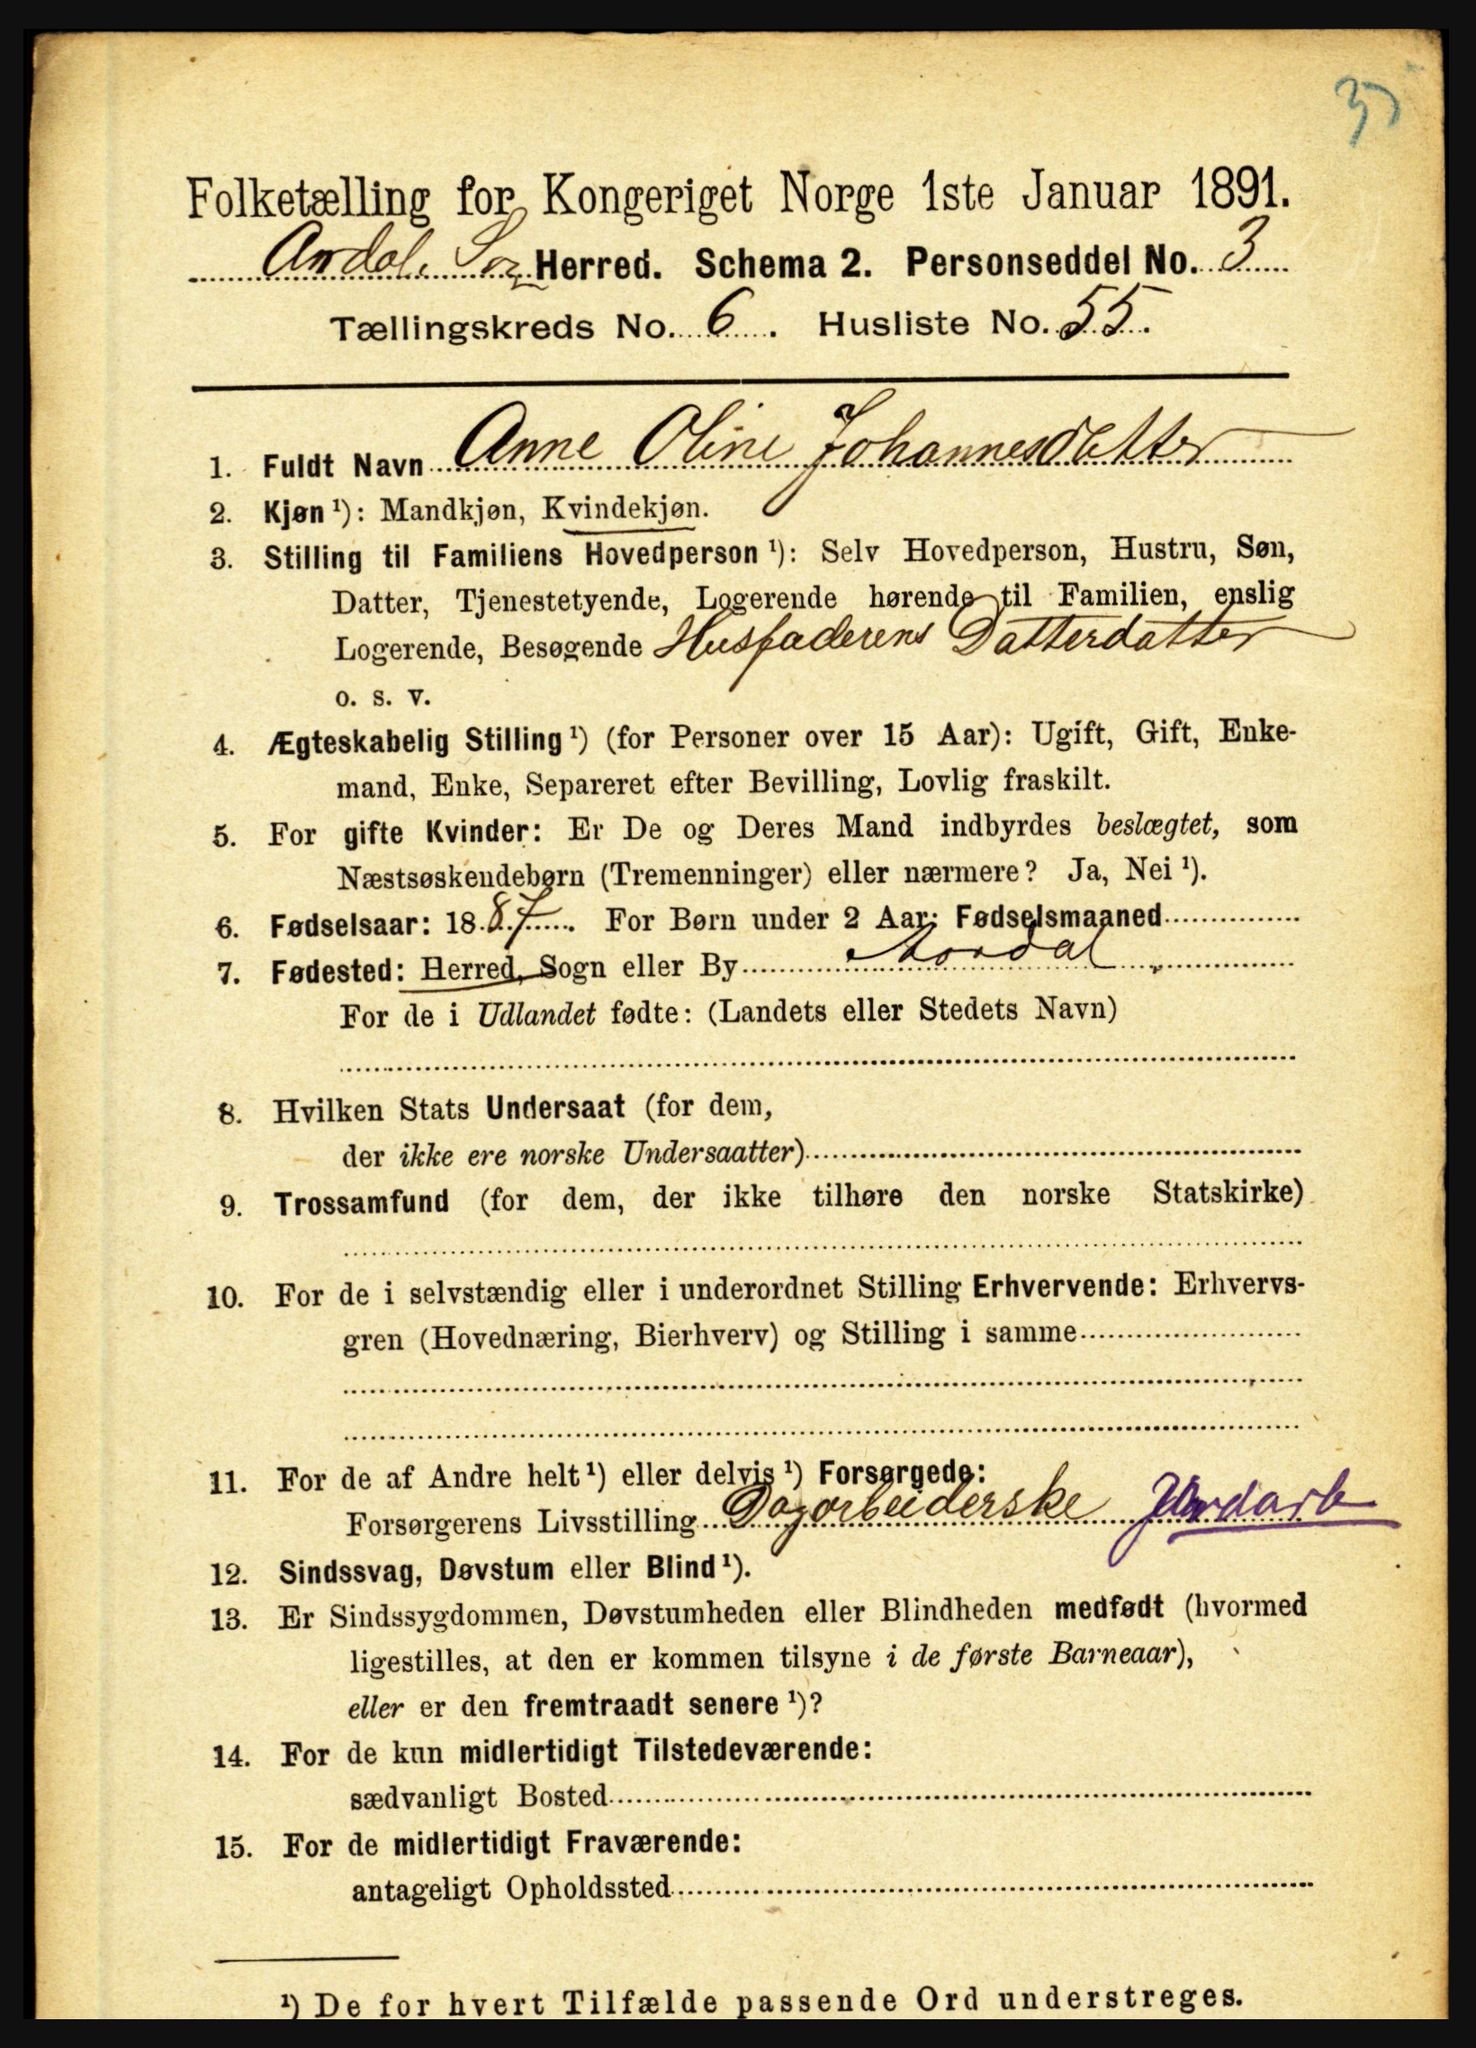 35
Folketælling for Kongeriget Norge 1ste Januar 1891.
Aurdal Søn Herred. Schema 2. Personseddel No. 3
Tællingskreds No. 6. Husliste No. 55.
1. Fuldt Navn Anne Oline Johannesdatter
2. Kjøn ¹): Mandkjøn, Kvindekjøn.
3. Stilling til Familiens Hovedperson ¹): Selv Hovedperson, Hustru, Søn,
Datter, Tjenestetyende, Logerende hørende til Familien, enslig
Logerende, Besøgende Husfaderens Datterdatter
o. s. v.
4. Ægteskabelig Stilling ¹) (for Personer over 15 Aar): Ugift, Gift, Enke-
mand, Enke, Separeret efter Bevilling, Lovlig fraskilt.
5. For gifte Kvinder: Er De og Deres Mand indbyrdes beslægtet, som
Næstsøskendebørn (Tremenninger) eller nærmere? Ja, Nei ¹).
6. Fødselsaar: 1887. For Børn under 2 Aar: Fødselsmaaned
7. Fødested: Herred, Sogn eller By
For de i Udlandet fødte: (Landets eller Stedets Navn)
8. Hvilken Stats Undersaat (for dem,
der ikke ere norske Undersaatter)
9. Trossamfund (for dem, der ikke tilhøre den norske Statskirke)
10. For de i selvstændig eller i underordnet Stilling Erhvervende: Erhvervs-
gren (Hovednæring, Bierhverv) og Stilling i samme
11. For de af Andre helt ¹) eller delvis ¹) Forsørgede:
Forsørgerens Livsstilling Dagarbeiderske Jordarb
12. Sindssvag, Døvstum eller Blind ¹).
13. Er Sindssygdommen, Døvstumheden eller Blindheden medfødt (hvormed
ligestilles, at den er kommen tilsyne i de første Barneaar),
eller er den fremtraadt senere ¹)?
14. For de kun midlertidigt Tilstedeværende:
sædvanligt Bosted
15. For de midlertidigt Fraværende:
antageligt Opholdssted
¹) De for hvert Tilfælde passende Ord understreges.